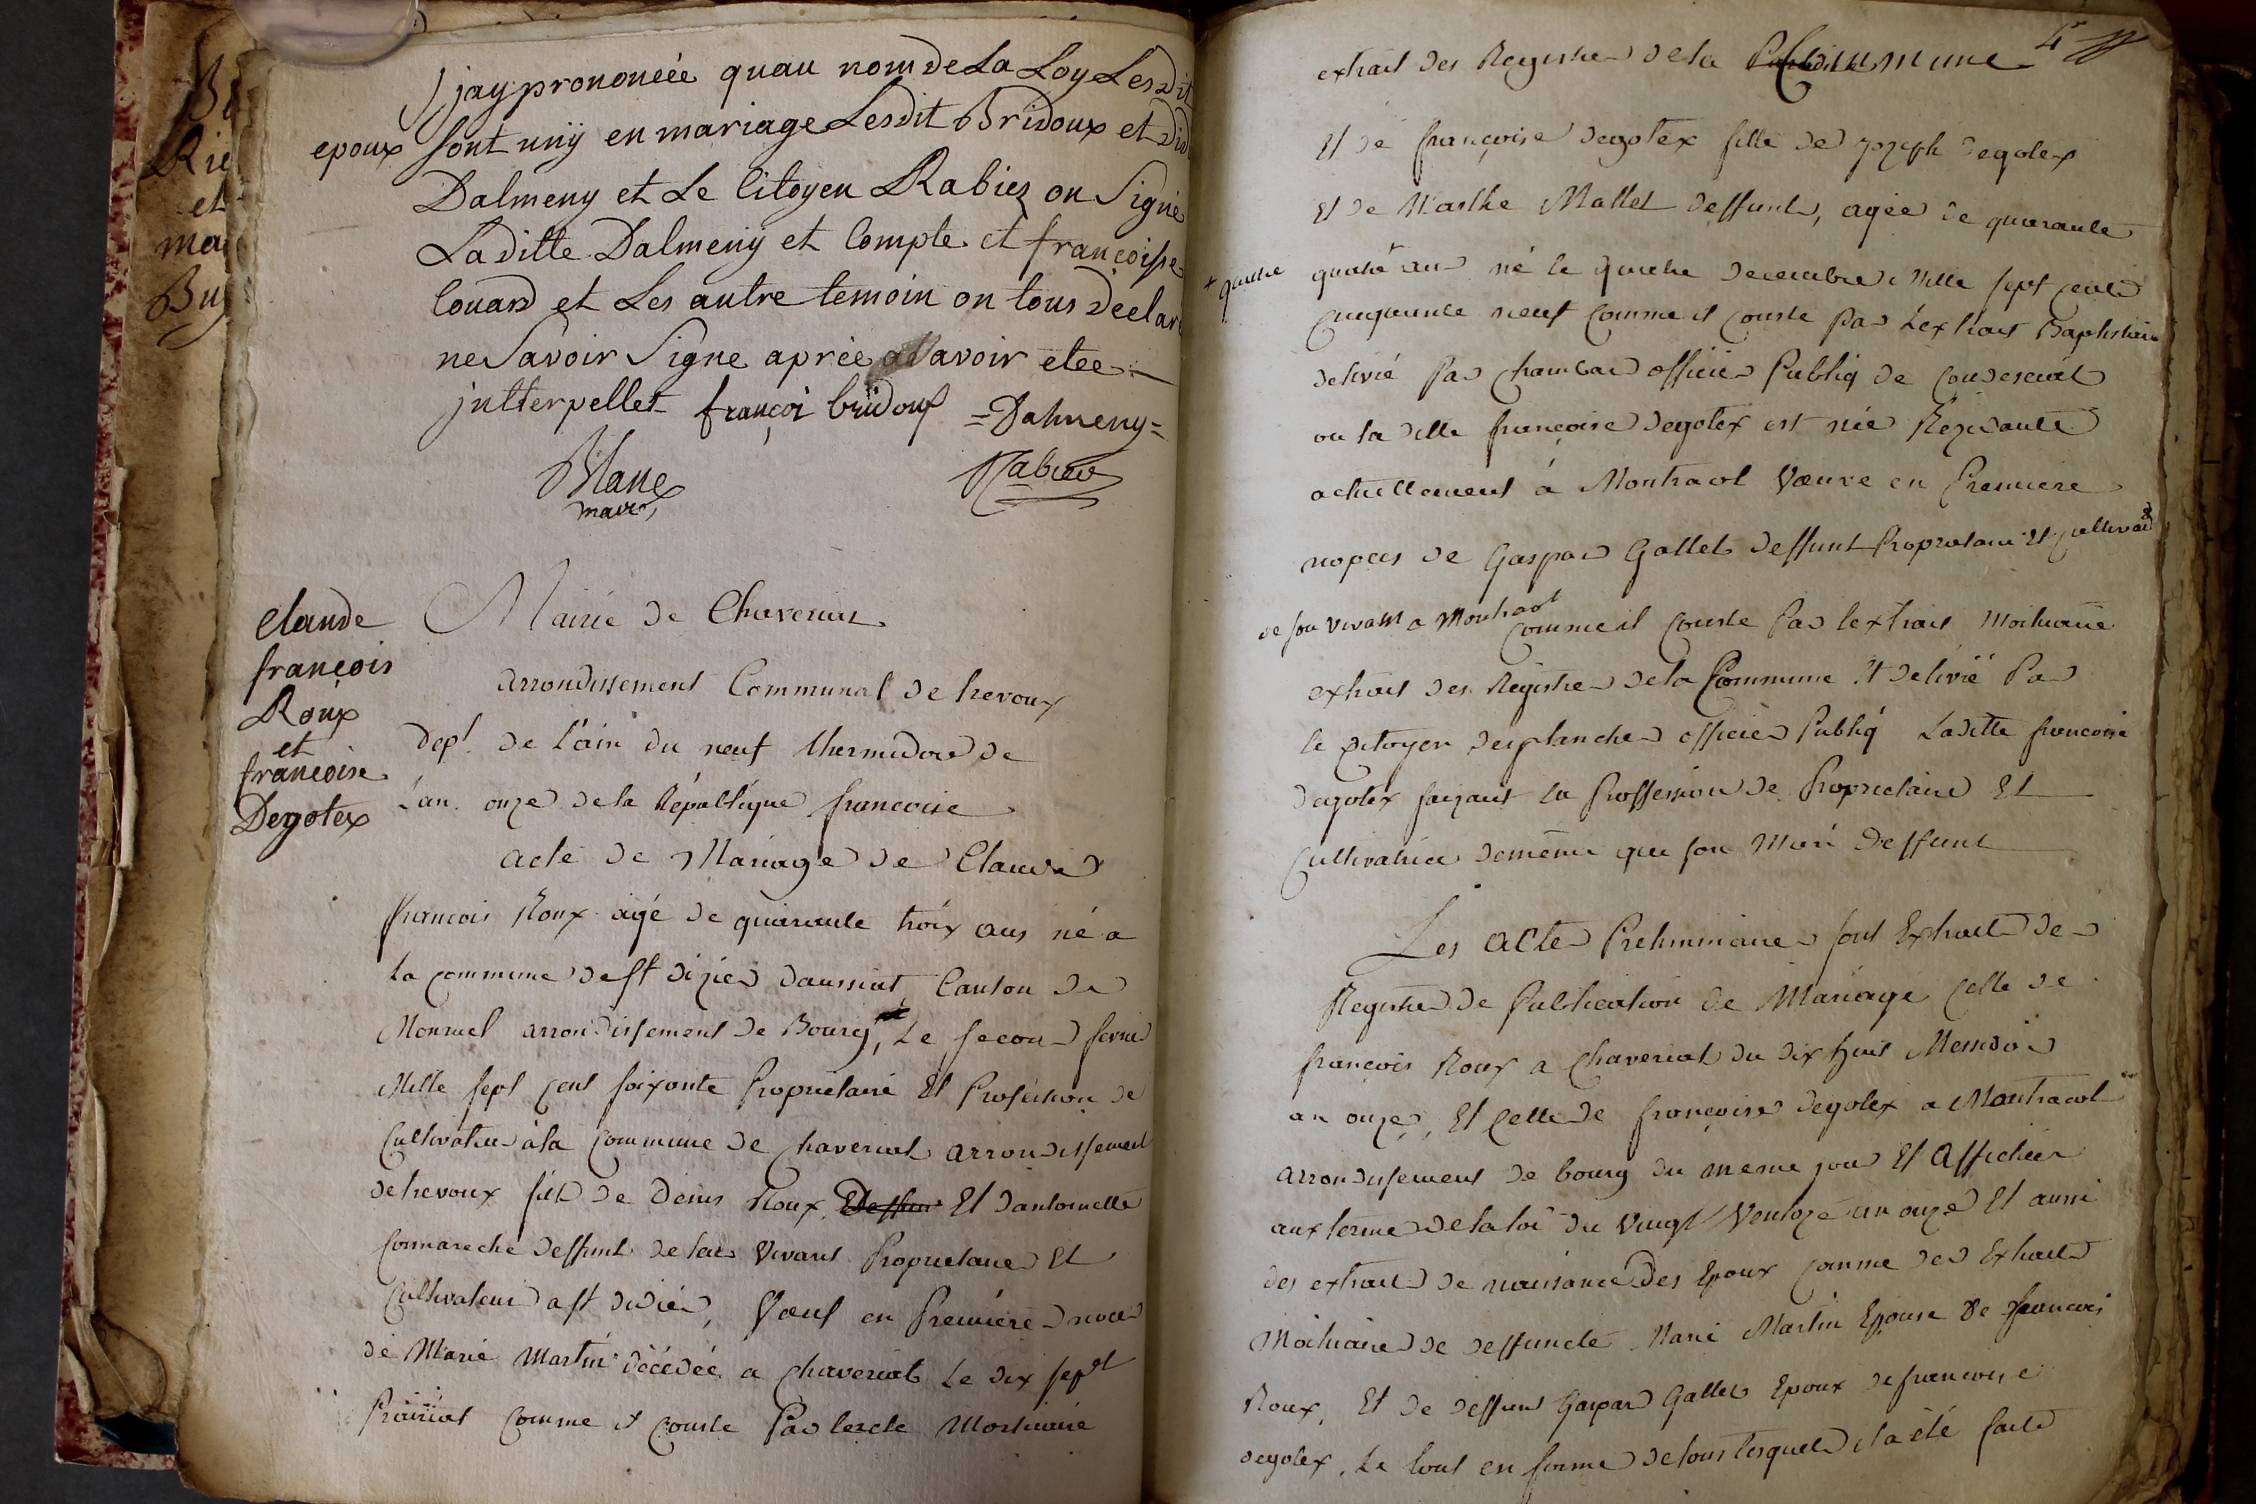 jay prononcée quau nom de La Loy Lesdit
epoux sont unÿ en mariage Lesdit Bridoux et did
Dalmeny et Le Citoyen Rabiez on Signé
Laditte Dalmeny et Compte et françoisse
Couard et Les autre temoin on tous Declar
ne Savoir Signe aprée avoir etee
jntterpellet françoi bridoux =Dalmeny=
Blanc Rabiez
maire
Claude
françois
Roux
et
françoise
Degotex
Mairie de Chaveriat
arrondissement Communal de trevoux
dept. de L'ain du neuf thermidore de
L'an onze de la République francoise
acte de Mariage de Claude
francois Roux agé de quarante troix ans né a
la commune de st dizier daussiat Canton de
Monruel arrondissement de Bourg, Le second fevrie
Mille sept cent soixante Proprietaire Et Profession de
Cultivateur à la Commune de Chaveriat arrondissement
de trevoux fils de Denis Roux Et dantoinette
Connareche deffunt de leur Vivant Proprietaire Et
Cultivateur a st didier, Vœuf en Premiere noce
de Marie Martin décédée a Chaveriat Le dix sept
Prairial Comme il conste Par lacte Mortuaire
4
extrait des Registre de la Commune
Et dé françoise degotex fille de joseph degotex
Et de Marthe Mallet deffunt, agée de quarante
+ quatre
quatre an né le quatre decembre Mille sept cent
cinquante neuf comme il conste Par L'extrait Baptistaire
delivré Par Chambar officier Publiq de Condesciat
ou la dille françoise degotex est née Rezidante
actuellement á Montracol Vœuve en Premiere
nopces de Gaspar Gallet deffunt Proprietaire Et Cultivateur
de son vivant a Montracol
comme il conste Par lextrait Mortuaire
extrait des Registre de la Commune Et delivré Par
le citoyen desplanche officier Publiq Laditte francoise
degotex faizant la Proffession de Proprietaire Et
Cultivatrice demême que son Mari deffunt
Les acte Preliminaire sont Extrait de
Registre de Publication de Mariage celle de
françois Roux a Chaveriat du dix huit Messidor
an onze, Et celle de françoise degotex a Montracol
arrondissement de bourg du meme jour Et affichéér
aux terme de la loi du Vingt Ventoze an onze Et aussi
des extrait de naissance des Epoux comme des Extrait
Mortuaire de deffuncte Marie Martin Epouse de francois
Roux, Et de deffunt Gaspar Gallet Epoux de francoise
degotex, Le tout en forme de tous lesquel il a été faite